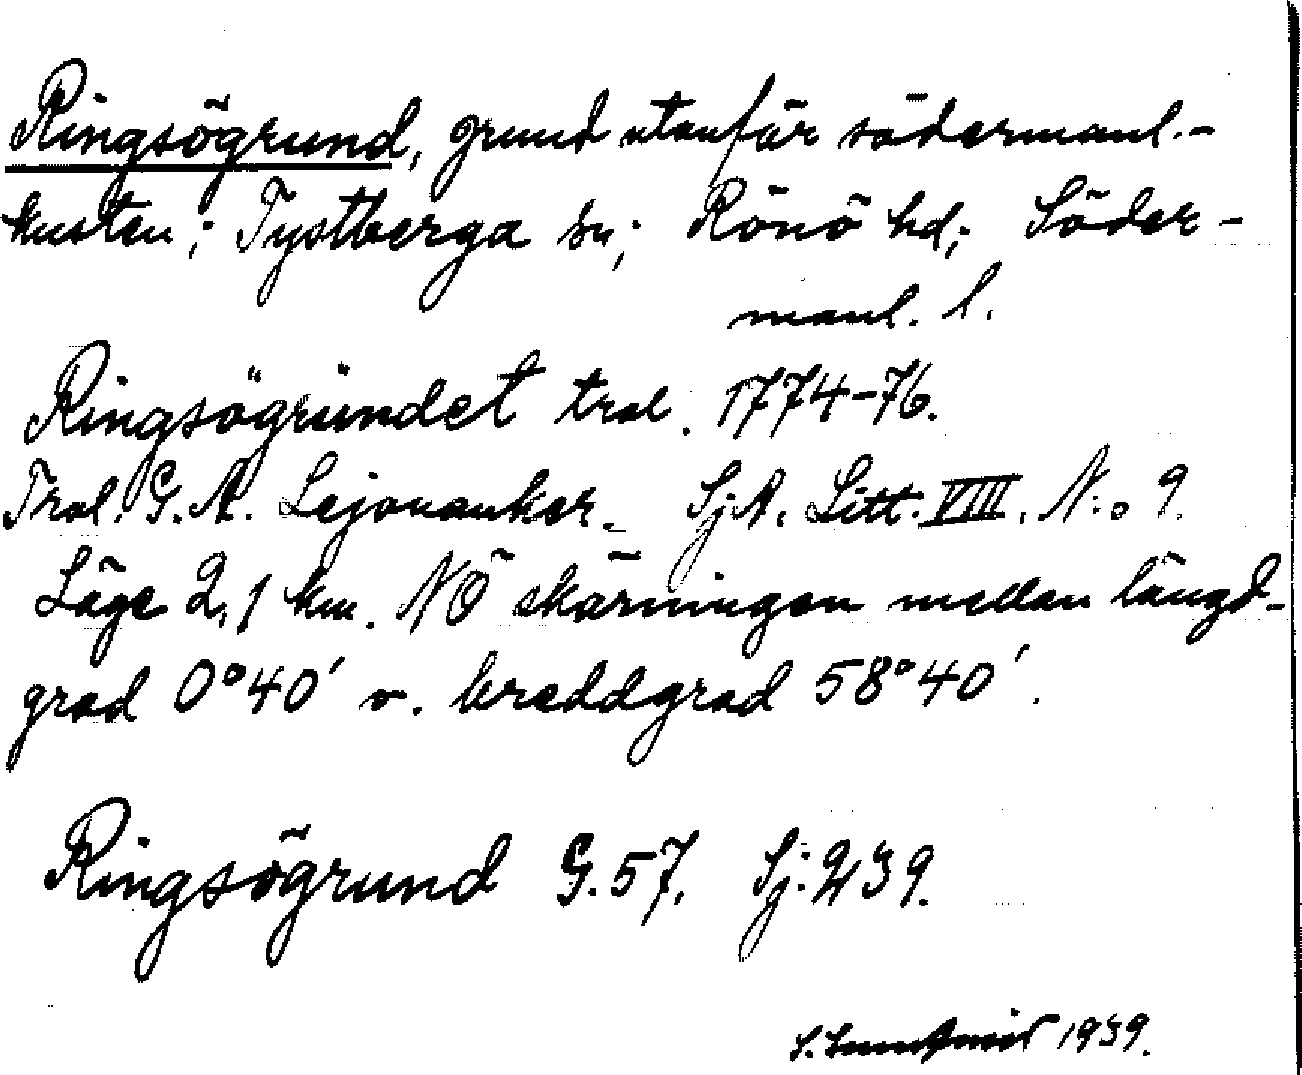 Ringsögrund, grund utanför söderman l.-
kusten; Tystberga sn; Rönö hd; Söder-
manl. l.
Ringsögründet trol. 1774-76.
Trol. G. A. Lejonanker. Sj.A. Litt. VIII. N:o 9.
Läge 2,1 km. NÖ skärningen mellan längd-
grad 0°40' v. breddgrad 58°40'.
Ringsögrund G. 57. Sj: 239.
S. 1939.